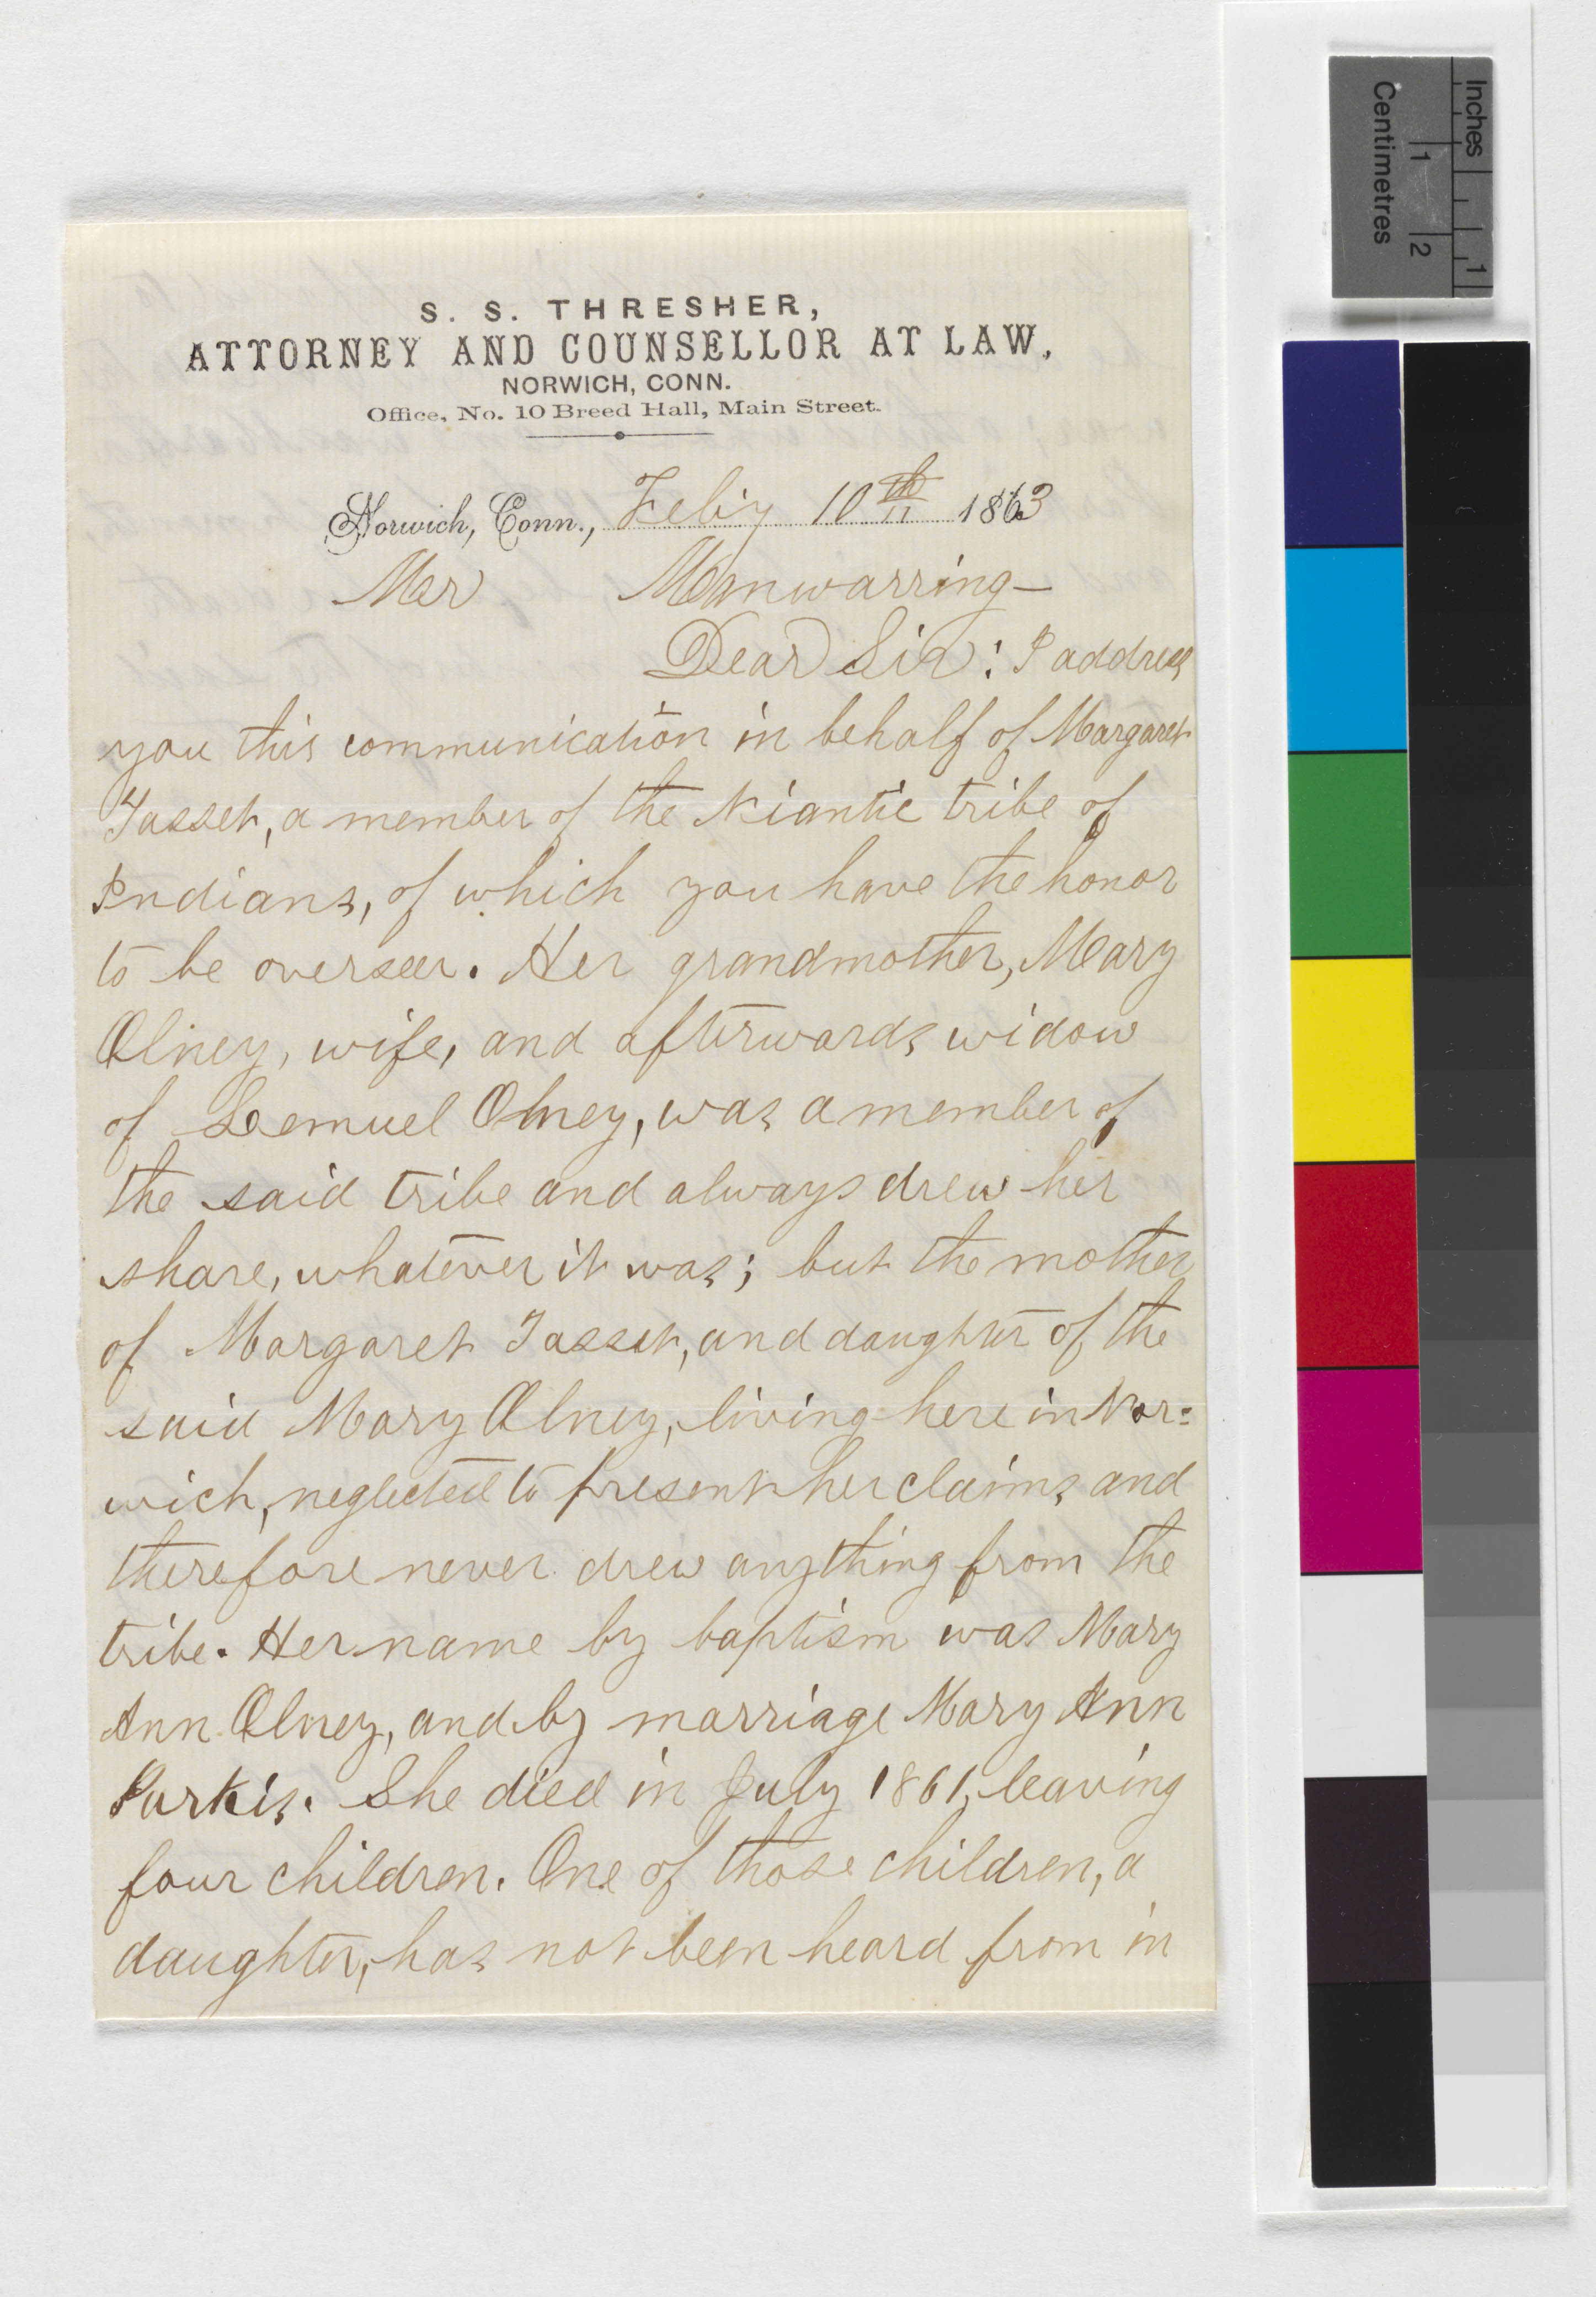 S. S. THRESHER,
ATTORNEY AND COUNSELLOR AT LAW,
NORWICH, CONN.
Office, No. 10 Breed Hall, Main Street.
Norwich, Conn., Feb'y 10th 1863
Mr Manwarring—
Dear Sir: I address
you this communication in behalf of Margaret
Tasset, a member of the Niantic tribe of
Indians, of which you have the honor
to be overseer. Her grandmother, Mary
Olney, wife, and afterwards widow
of Lemuel Olney, was a member of
the said tribe and always drew her
share, whatever it was; but the mother
of Margaret Tasset, and daughter of the
said Mary Olney, living here in Nor=
wich, neglected to present her claims and
therefore never drew anything from the
tribe. Her name by baptism was Mary
Ann Olney, and by marriage Mary Ann
Parkis. She died in July 1861, leaving
four children. One of those children, a
daughter, has not been heard from in
Inches
1
Centimetres
1 2